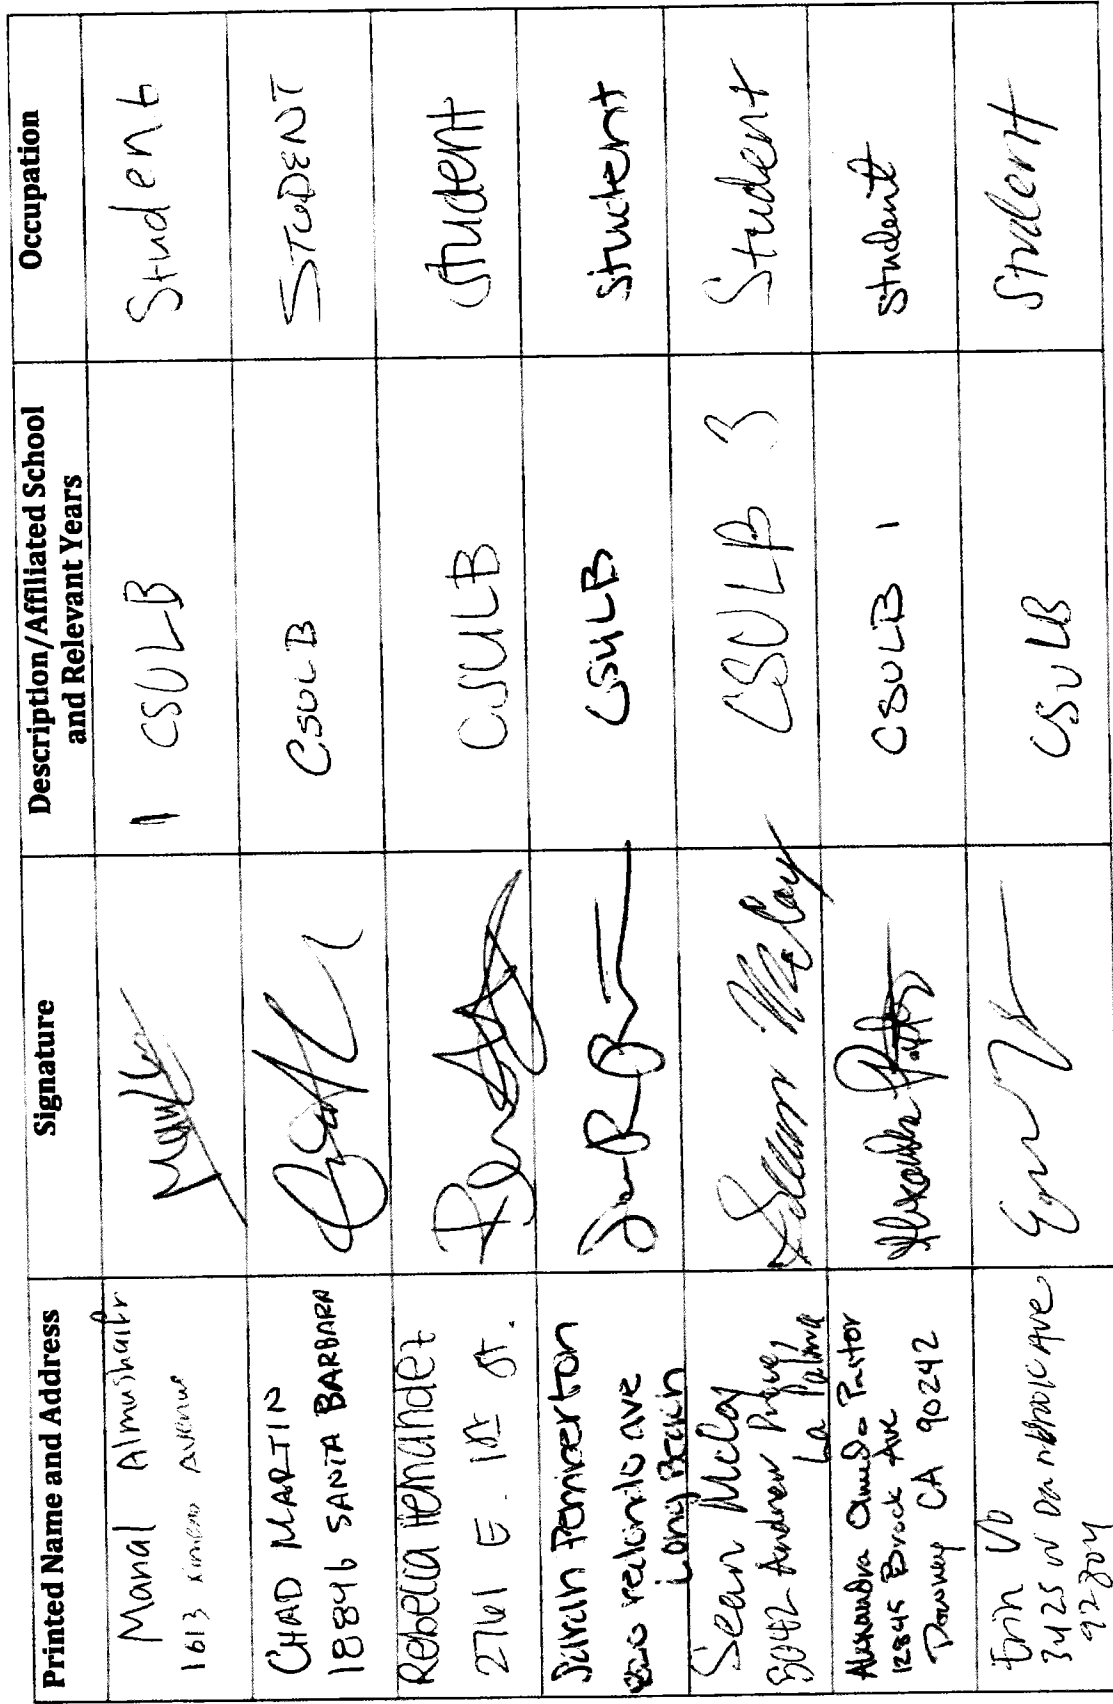 Printed Name and Address Signature Description/Affiliated School and Relevant Years Occupation
Manal Almushaifr
1613 Ximeno Avenue
1 CSULB
Student
CHAD MARTIN
18846 SANTA BARBARA
CSULB
STUDENT
Rebecca Hernandez
2761 E. 1st St.
CSULB
Student
Sarah Pemberton
redondo ave
Long Beach
CSULB
student
Sean McCoy
5042 Andrew
La Palma
Sean McCoy
CSULB 3
Student
Alexandra Pastor
12845 Brock Ave
Downey CA 90242
Alexandra
CSULB 1
student
Erin Vo
3425 W Ave
92804
CSULB
Student